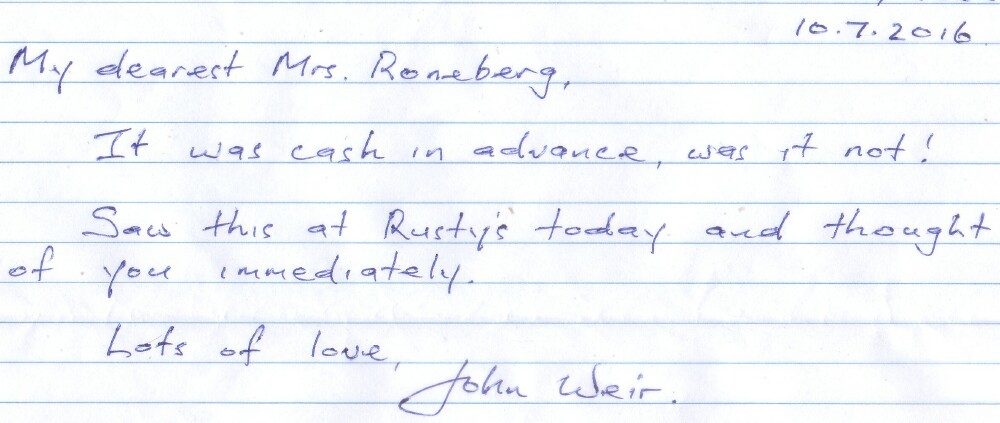 10.7.2016
My dearest Mrs. Roneberg,
It was cash in advance, was it not!
Saw this at Rusty's today and thought
of you immediately.
Lots of love,
John Weir.